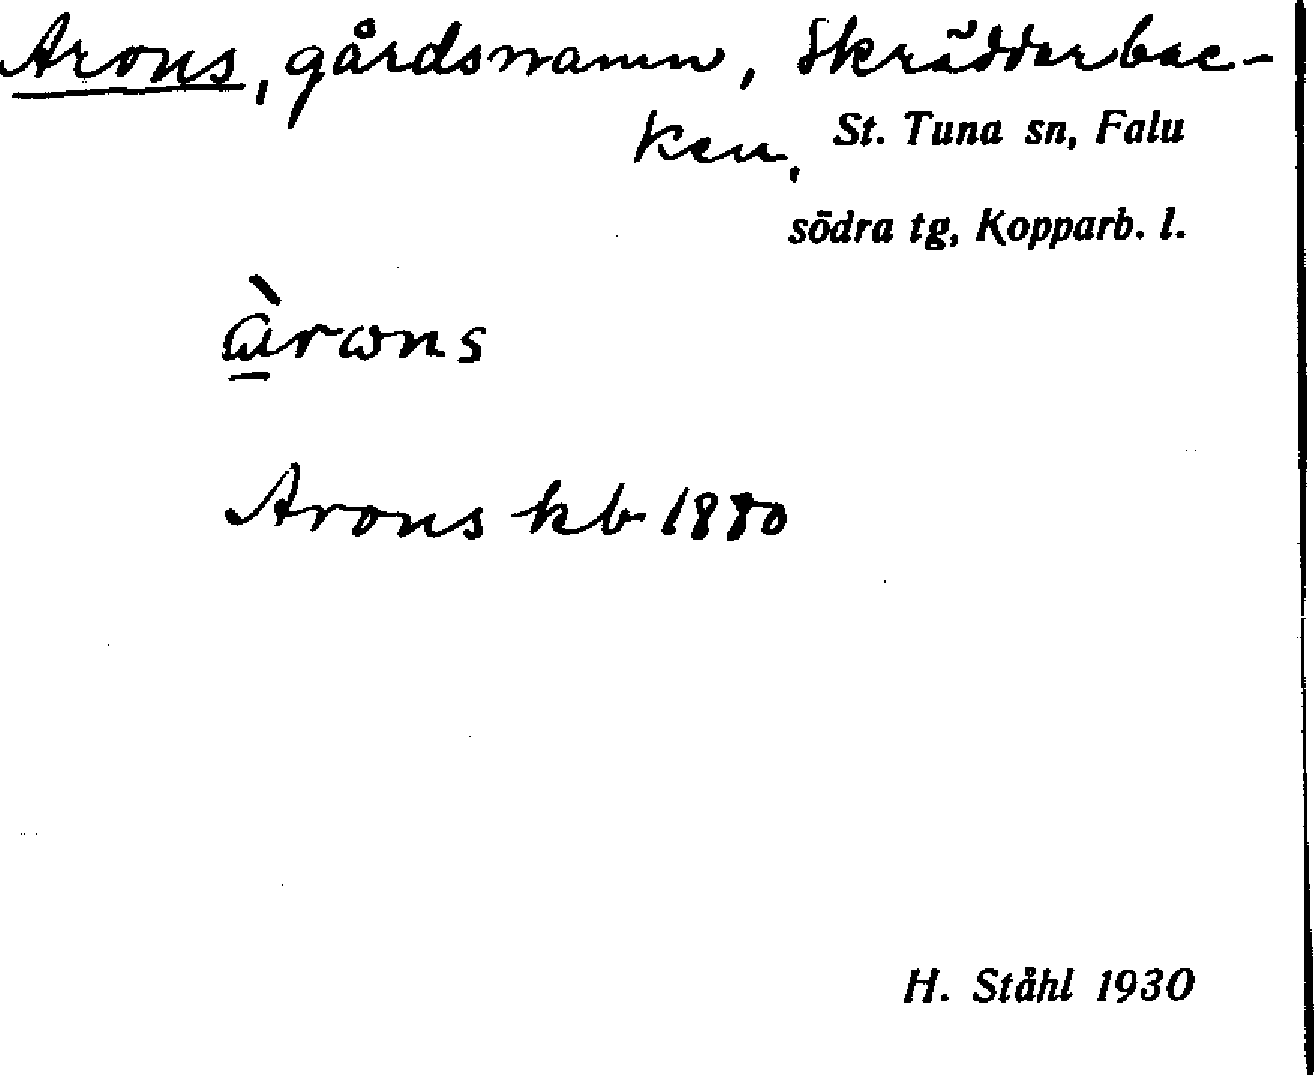 Arons, gårdsnamn, Skräddarbac-
ken, St. Tuna sn, Falu
södra tg, Kopparb. l.
àrωns
Arons kb 1880
H. Ståhl 1930